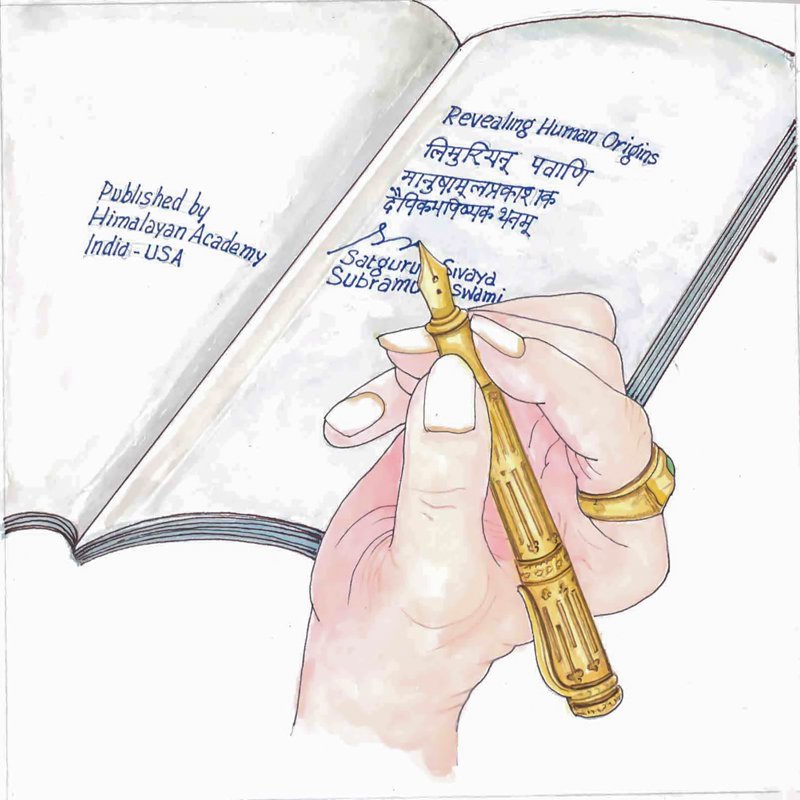 Published by
Himalayan Academy
India - USA
Revealing Human Origins
लिमुरियन् पवाणि
मानुषामूलप्रकाशक
Satguru Sivaya
Subramu swami